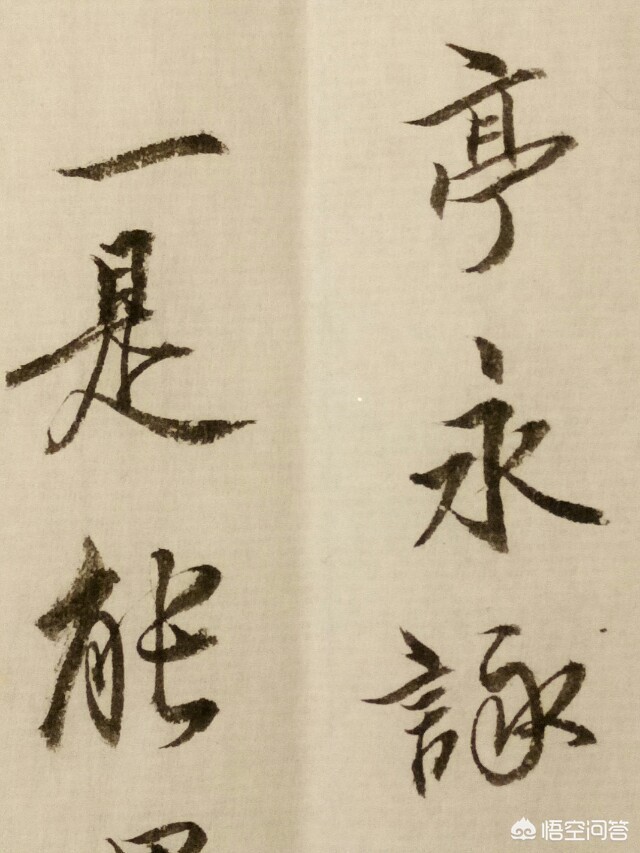 亭永詠
一是能
悟空问答